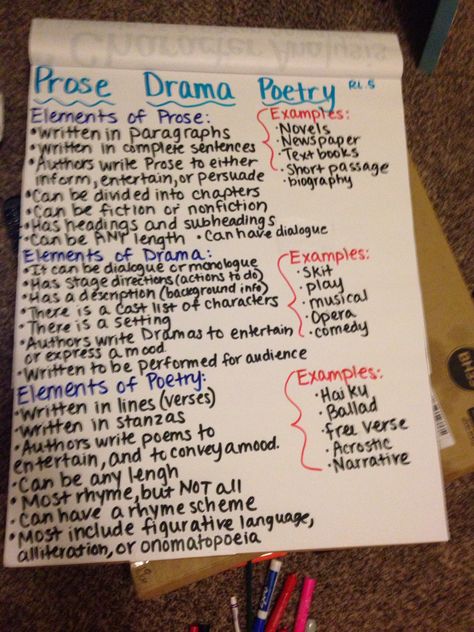 Character Analysis
Prose Drama Poetry RL.5
Elements of Prose:
•Written in paragraphs
•Written in complete sentences
•Authors write Prose to either
inform, entertain, or persuade
•Can be divided into chapters
•Can be fiction or nonfiction
•Has headings and subheadings
•Can be ANY length •Can have dialogue
Examples:
•Novels
•Newspaper
•Textbooks
•Short passage
•biography
Elements of Drama:
•It can be dialogue or monologue
•Has stage directions (actions to do)
•Has a description (background info)
•There is a cast list of characters
•There is a setting
•Authors write Dramas to entertain
or express a mood.
•Written to be performed for audience
Examples:
•skit
•play
•musical
•Opera
•comedy
Elements of Poetry:
•Written in lines (verses)
•Written in stanzas
•Authors write poems to
entertain, and to convey a mood.
•Can be any lengh
•Most rhyme, but NOT all
•Can have a rhyme scheme
•Most include figurative language,
alliteration, or onomatopoeia
Examples:
•Haiku
•Ballad
•free verse
•Acrostic
•Narrative